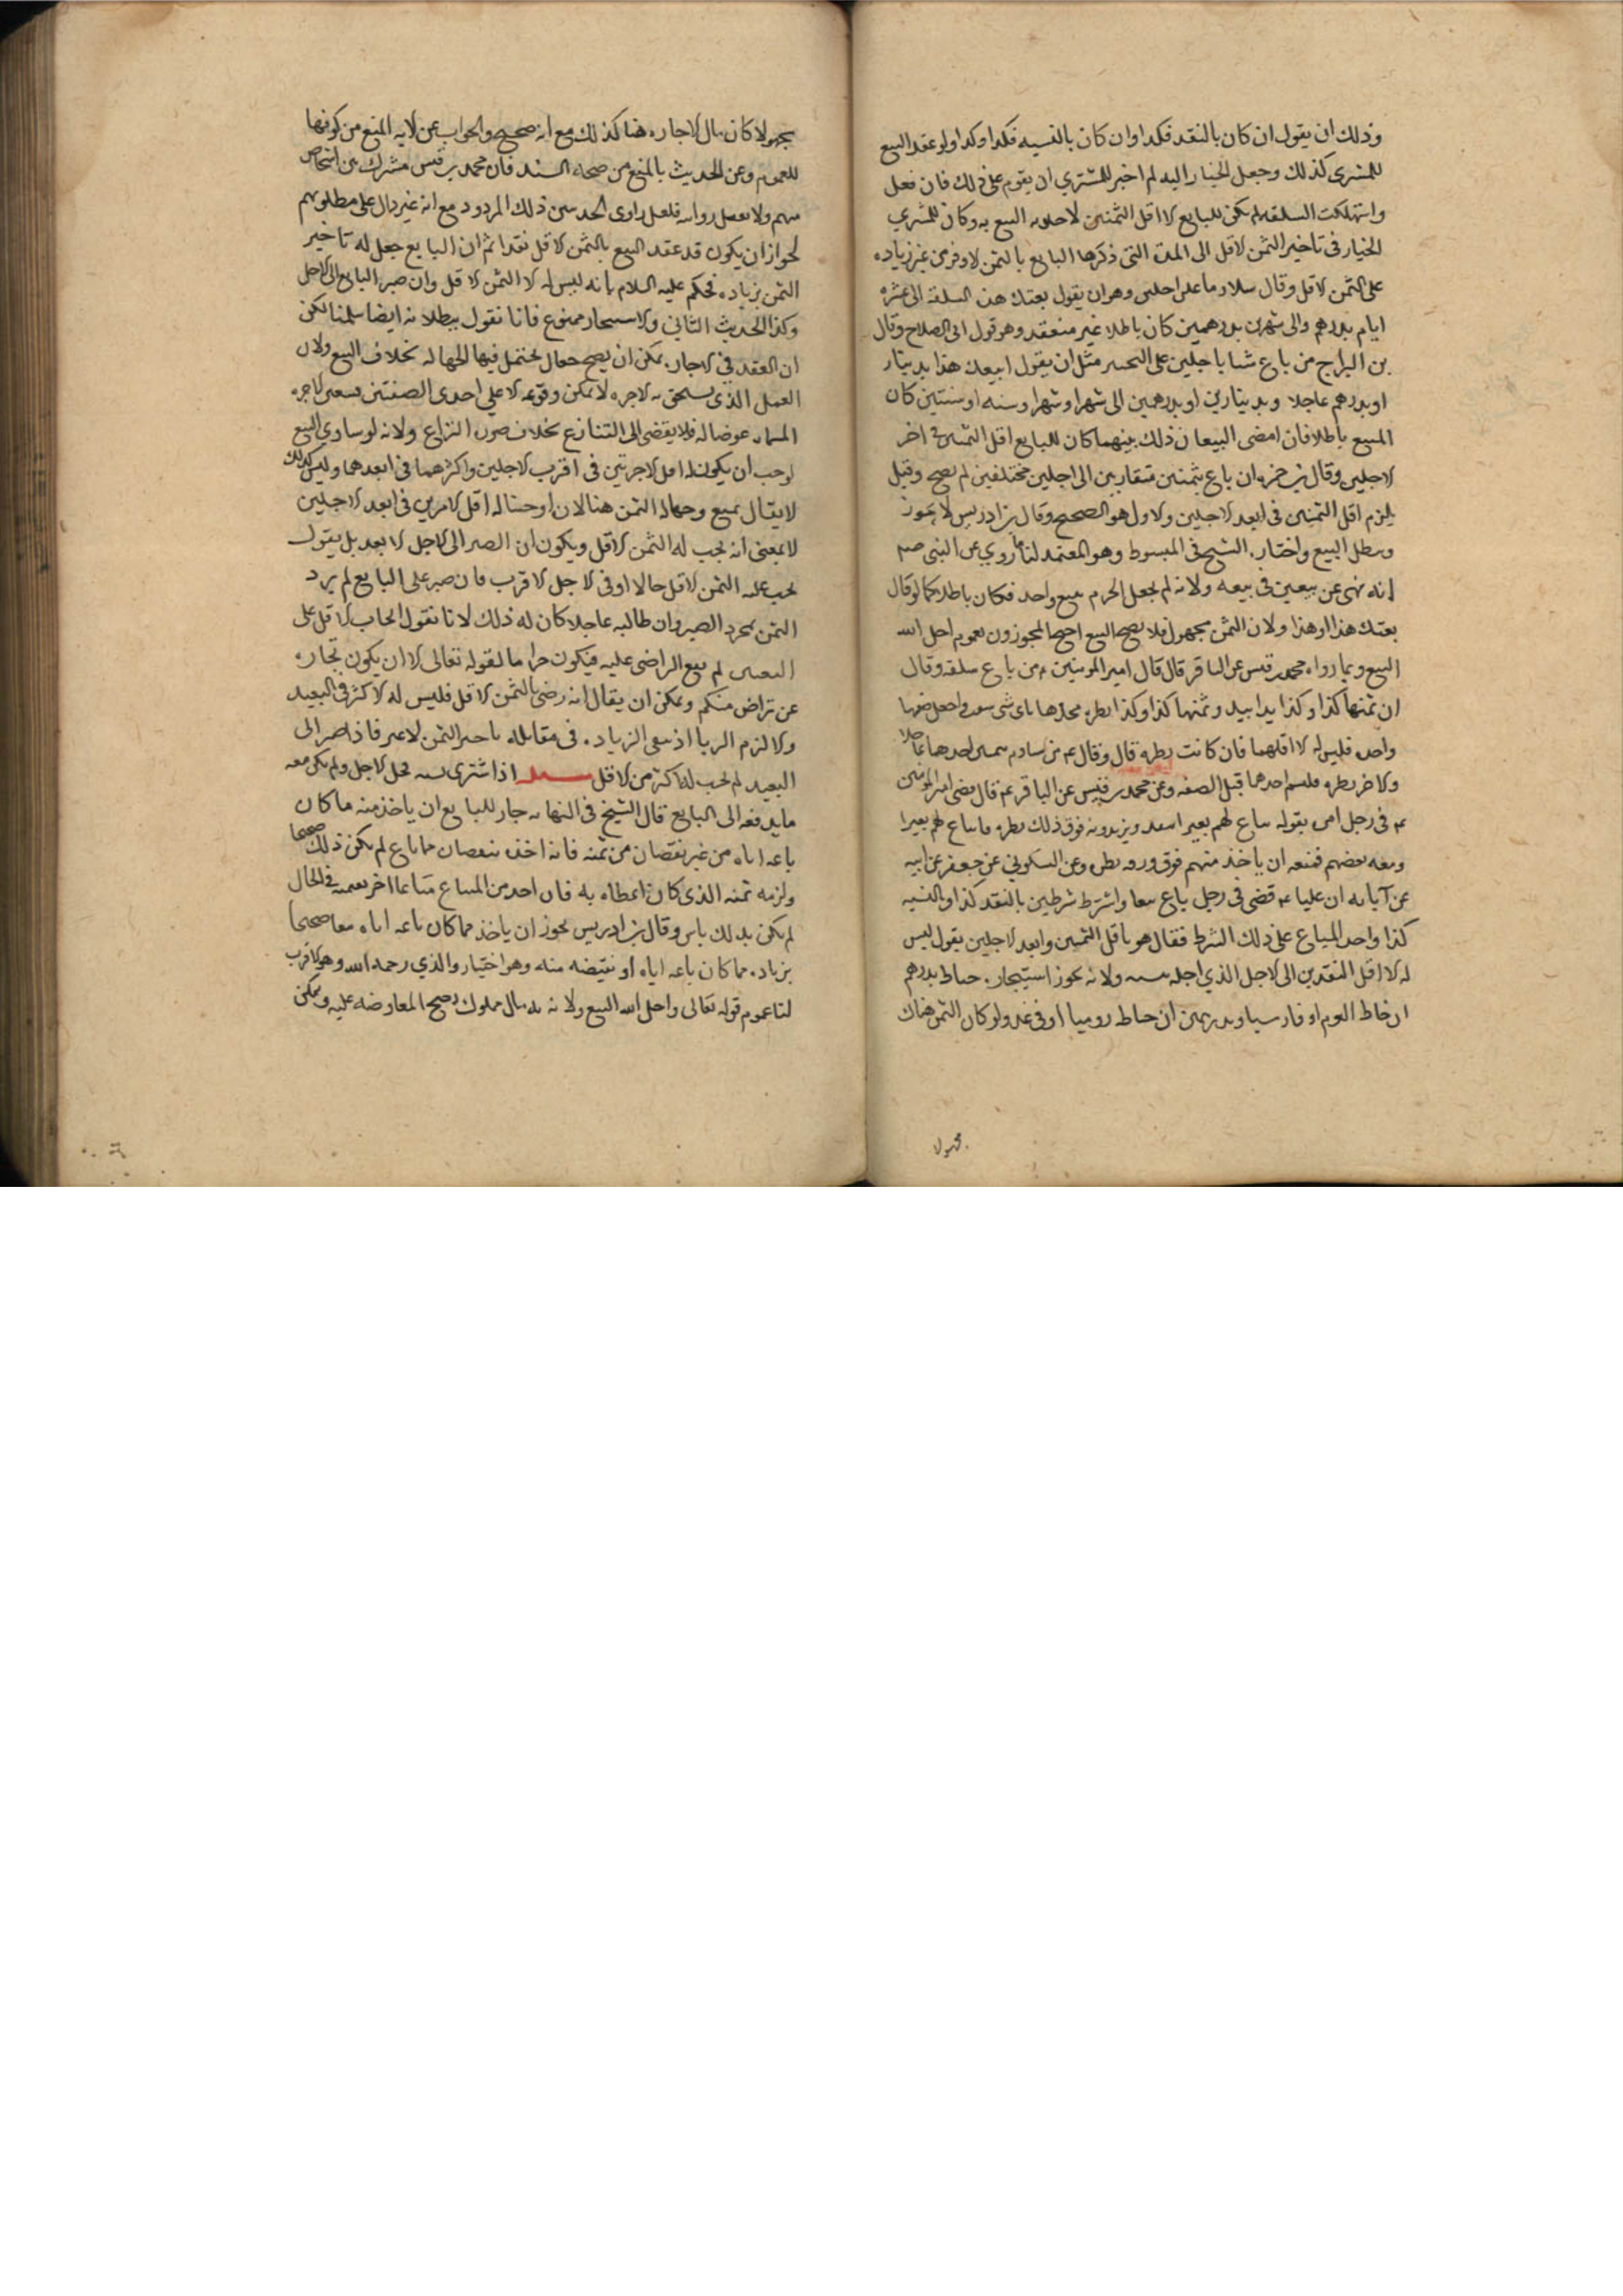 وذلك ان يقول ان كان بالنقد فكذا وان كان بالنسيه فكذا وكذا ولو عقد البيع
للمشترى كذلك وجعل الخيار اليه لم اختر للمشتري ان يقوم على ذلك فان فعل
واستهلكت السلعه لم يكن للبايع الا اقل الثمنين لاجل البيع به وكان للمشتري
الخيار فى تاخير الثمن الاقل الى المدة التى ذكرها البايع بالثمن الاوفر من غير زياده
على الثمن الاقل وقال سلار ما علق باجلين وهو ان يقول بعتك هذه السلعة الى عشره
ايام بدرهم والى شهرين بدرهمين كان باطلا غير منعقد وهو قول ابى الصلاح وقال
بن البراج من باع شيا باجلين على التخيير مثل ان يقول ابيعك هذا بدينار
او بدرهم عاجلا وبدينارين او بدرهمين الى شهر او شهرا وسنه او سنتين كان
المبيع باطلا فان امضى البيعان ذلك بينهما كان للبايع اقل الثمنين فى اخر
الاجلين وقال بن حمزه ان باع بثمنين متقاربين الى اجلين مختلفين لم يصح وقيل
يلزم اقل الثمنين فى ابعد الاجلين والاول هو الصحيح وقال بن ادريس لا يجوز
ويبطل البيع واختاره الشيخ فى المبسوط وهو المعتمد لنا ما روي عن النبى صم
انه نهى عن بيعين فى بيعه ولانه لم يجعل بيع واحد فكان باطلا كما لو قال
بعتك هذا او هذا ولان الثمن مجهول فلا يصح البيع احتج المجوزون بعموم احل الله
البيع وبما رواه محمد بن قيس عن الباقر قال قال امير المومنين ع من باع سلعه وقال
ان ثمنها كذا وكذا يدا بيد وثمنها كذا وكذا نظره فخذها باى شى واجعل صفقتها
واحده فليس له الا اقلهما فان كانت نظره قال وقال ع من ساوم بثمنين احدهما عاجلا
والاخر نظره فليسم احدهما قبل الصفقه وعن محمد بن قيس عن الباقر ع قال قضى امير المومنين
ع فى رجل امره نفر يبتاع لهم بعيرا بنقد ويزيدونه فوق ذلك نظره فابتاع لهم بعيرا
ومعه بعضهم فمنعه ان ياخذ منهم فوق ورقه نظره وعن السكوني عن جعفر عن ابيه
عن آبايه ان عليا ع قضى فى رجل باع بيعا واشترط شرطين بالنقد كذا وبالنسيه
كذا واخذ المتاع على ذلك الشرط فقال هو باقل الثمنين وابعد الاجلين يقول ليس
له الا اقل النقدين الى الاجل الذي اجله بنسيه ولانه يجوز استيجاره خياط بدرهم
ان خاط اليوم او فارسيا وبدرهمين ان خاط روميا او فى غد ولو كان الثمن هناك
مجهولا
مجهولا لكان مال الاجاره هنا كذلك مع انه صحيح والجواب عن الايه المنع من كونها
للعموم وعن الحديث بالمنع من صحة السند فان محمد بن قيس مشترك بين اشخاص
منهم ولا تعمل روايته فلعل راوى الحديثين ذلك المردود مع انه غير دال على مطلوبهم
لجواز ان يكون قد عقد البيع بالثمن الاقل نقدا ثم ان البايع جعل له تاخير
الثمن بزياده فحكم عليه السلام بانه ليس له الا الثمن الاقل وان صبر البايع الى الاجل
وكذا الحديث الثاني والاستيجار ممنوع فانا نقول ببطلانه ايضا سلمنا لكن
ان العقد فى الاجاره يمكن ان يصح جعاله يحتمل فيها الجهاله بخلاف البيع ولان
العمل الذى يستحق به الاجره لا يمكن وقوعه الا على احدى الصفتين فتعين الاجره
المسماه عوضا له فلا يفضى الى التنازع بخلاف صورة النزاع ولانه لو ساوى البيع
لوجب ان يكون له اقل الاجرتين فى اقرب الاجلين واكثرهما فى ابعدهما وليس كذلك
لا يقال نمنع وجهالة الثمن هنا لانا اوجبنا له اقل الامرين فى ابعد الاجلين
لا بمعنى انه يجب له الثمن الاقل ويكون ان الصبر الى الاجل الابعد بل يقول
يجب عليه الثمن الاقل حالا او فى الاجل الاقرب فان صبر على البايع لم يزد
الثمن بمجرد الصبر وان طالبه عاجلا كان له ذلك لانا نقول ايجاب الاقل على
لم يقع التراضى عليه فيكون حراما لقوله تعالى الا ان يكون تجاره
عن تراض منكم ويمكن ان يقال انه رضى بالثمن الاقل فليس له الاكثر فى البعيد
والا لزم الربا اذ يبقى الزياده فى مقابله تاخير الثمن لا غير فاذا صبر الى
البعيد لم يجب له اكثر من الاقل مسله اذا اشترى نسيه فحل الاجل ولم يكن معه
ما يدفعه الى البايع قال الشيخ فى النهايه جاز للبايع ان ياخذ منه ما كان
باعه اياه من غير نقصان من ثمنه فان اخذه بنقصان مما باع لم يكن ذلك صحيحا
ولزمه ثمنه الذى كان اعطاه به فان اخذ من المبتاع متاعا اخر بقيمته فى الحال
لم يكن بذلك باس وقال بن ادريس يجوز ان ياخذ مما كان باعه اياه بيعا صحيحا
بزياده مما كان باعه اياه او نقيصه منه وهو اختيار والدي رحمه الله وهو الاقرب
لنا عموم قوله تعالى واحل الله البيع ولانه مال مملوك يصح المعاوضه عليه ويمكن